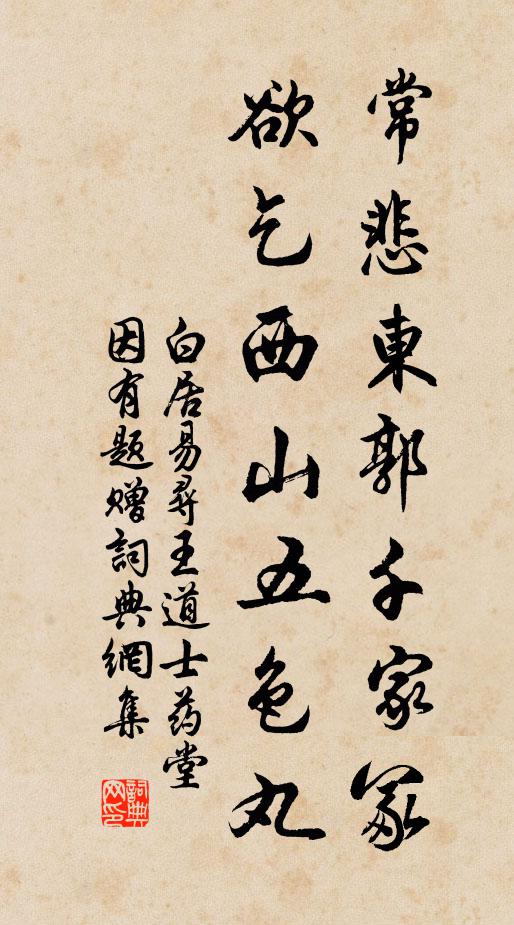 常悲東郭千家冢
欲乞西山五色丸
白居易尋王道士药堂
因有题赠詞典網集
詞典网印